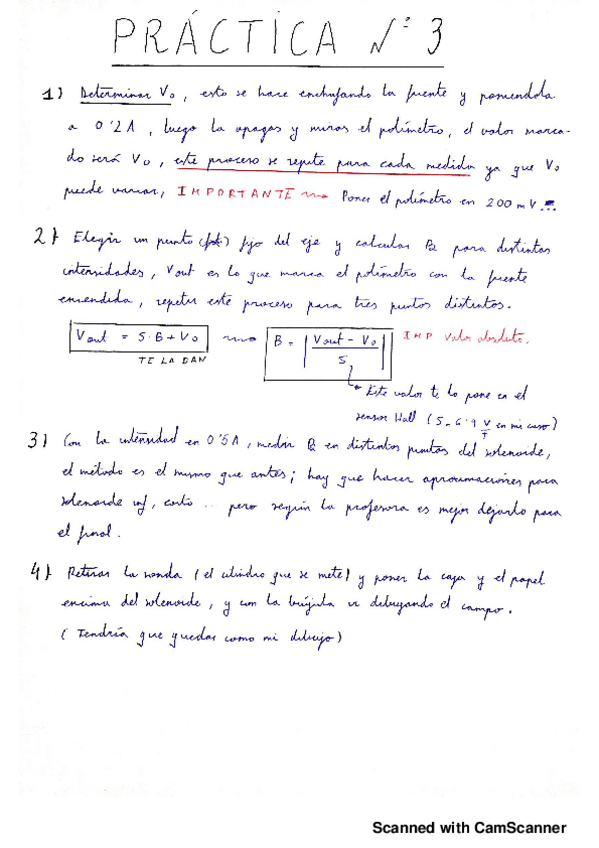 PRÁCTICA Nº 3
1) Determinar Vo, esto se hace enchufando la fuente y poniendola
a 0'2A, luego la apagas y miras el polímetro, el valor marca-
do será Vo, este proceso se repite para cada medida ya que Vo
puede variar, IMPORTANTE → Poner el polímetro en 200 mV
2) Elegir un punto fijo del eje y calculas B para distintas
intensidades, Vout es lo que marca el polímetro con la fuente
encendida, repetir este proceso para tres puntos distintos.
Vout = S·B+Vo → B = |Vout - Vo / S| IMP Valor absoluto.
TE LA DAN
Este valor te lo pone en el
sensor Hall (S=6'9 V/T en mi caso)
3) Con la intensidad en 0'5A, medir B en distintos puntos del solenoide,
el método es el mismo que antes; hay que hacer aproximaciones para
solenoide inf, corto ... pero según la profesora es mejor dejarlo para
el final.
4) Retiras la sonda (el cilindro que se mete) y poner la caja y el papel
encima del solenoide, y con la brújula ir dibujando el campo.
(Tendría que quedar como mi dibujo)
Scanned with CamScanner